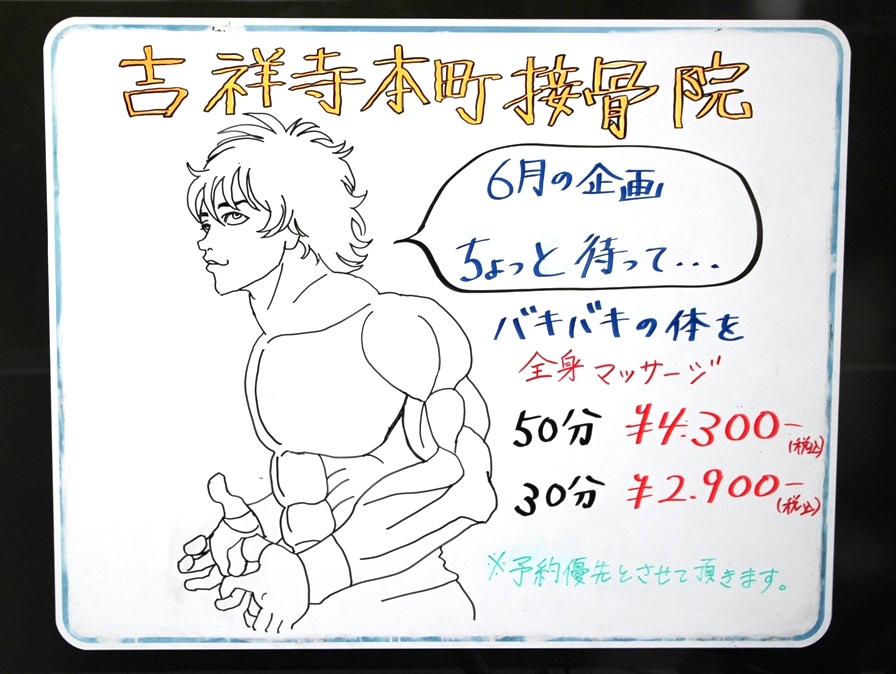 吉祥寺本町接骨院
6月の企画
ちょっと待って...
バキバキの体を
全身マッサージ
50分 ¥4.300-(税込)
30分 ¥2.900-(税込)
※予約優先とさせて頂きます。